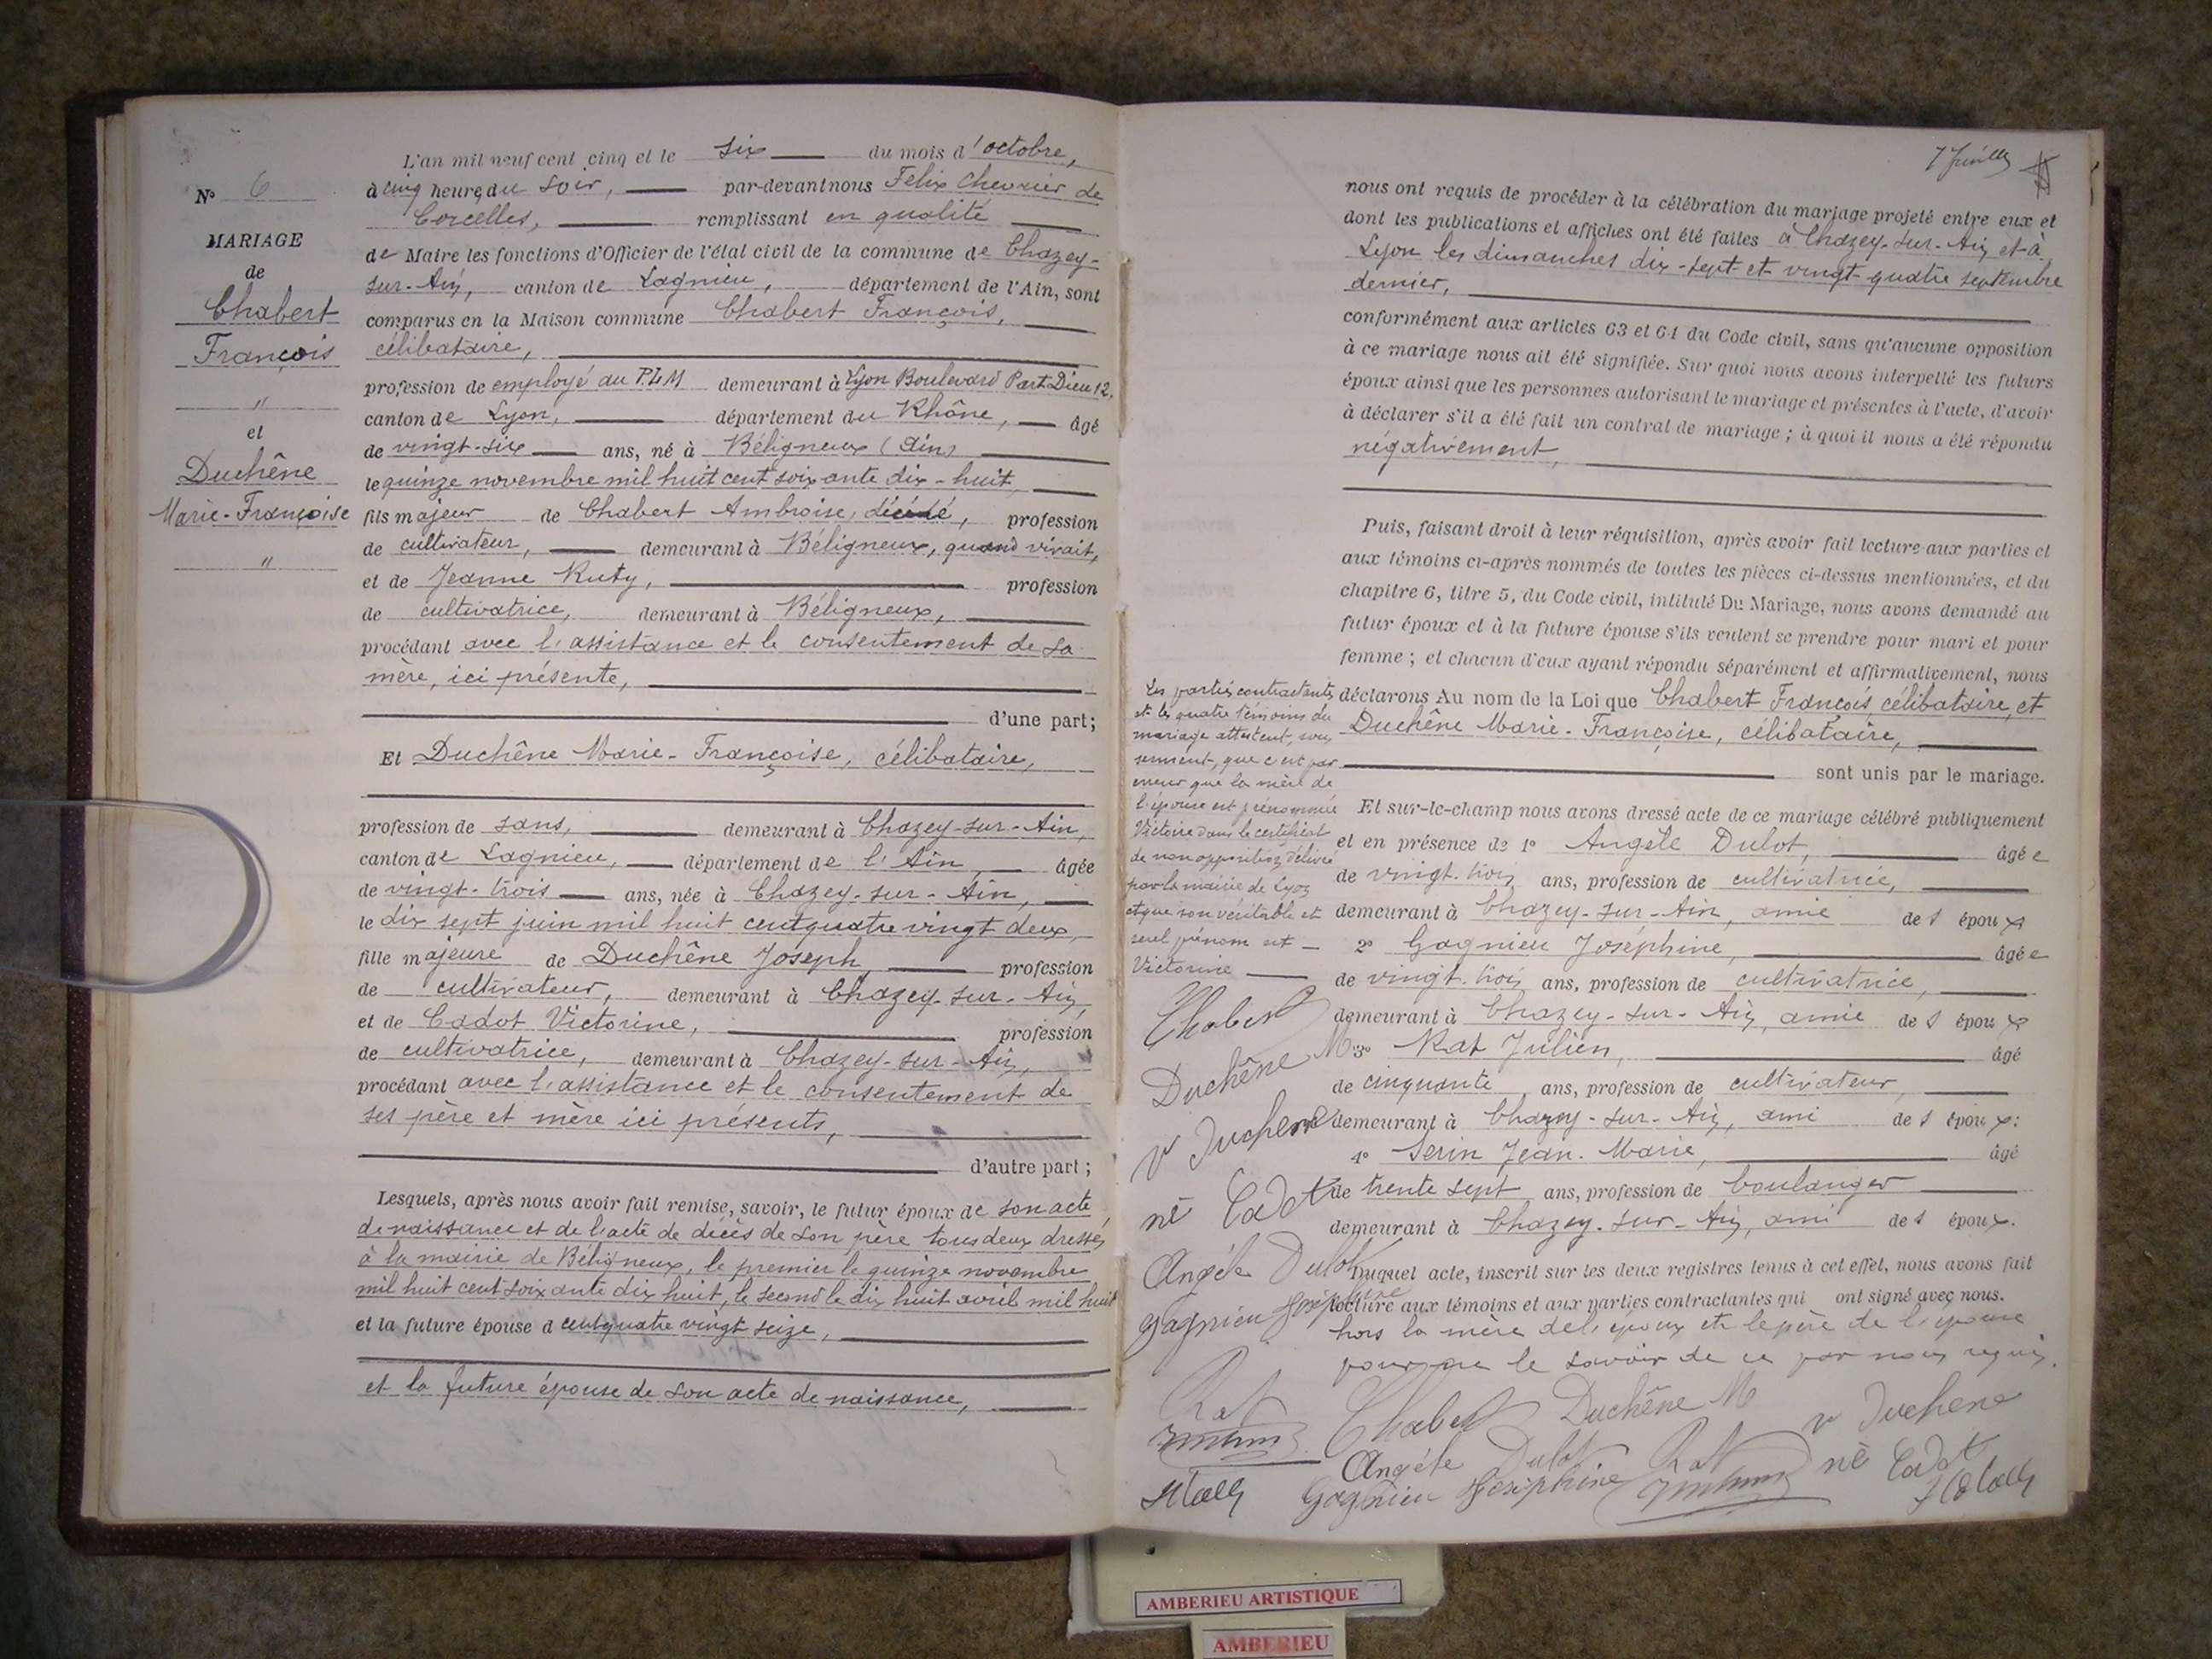 N° 6
MARIAGE
de
Chabert
François
"
et
Duchêne
Marie-Françoise
"
L'an mil neuf cent cinq et le six du mois d'octobre,
à cinq heures du soir, par-devant nous Felix Chevrier de
Corcelles, remplissant en qualité
de Maire les fonctions d'Officier de l'état civil de la commune de Chazey-
sur-Ain, canton de Lagnieu, département de l'Ain, sont
comparus en la Maison commune Chabert François,
célibataire,
profession de employé au P.L.M demeurant à Lyon Boulevard Part-Dieu 12,
canton de Lyon, département du Rhône, âgé
de vingt-six ans, né à Béligneux (Ain)
le quinze novembre mil huit cent soixante dix-huit,
fils majeur de Chabert Ambroise, décédé, profession
de cultivateur, demeurant à Béligneux, quand vivait,
et de Jeanne Ruty, profession
de cultivatrice, demeurant à Béligneux,
procédant avec l'assistance et le consentement de sa
mère, ici présente,
d'une part;
Et Duchêne Marie-Françoise, célibataire,
profession de sans, demeurant à Chazey-sur-Ain,
canton de Lagnieu, département de l'Ain âgée
de vingt-trois ans, née à Chazey-sur-Ain,
le dix sept juin mil huit cent quatre vingt deux,
fille majeure de Duchêne Joseph profession
de cultivateur, demeurant à Chazey-sur-Ain,
et de Cadot Victorine, profession
de cultivatrice, demeurant à Chazey-sur-Ain,
procédant avec l'assistance et le consentement de
ses père et mère ici présents,
d'autre part;
Lesquels, après nous avoir fait remise, savoir, le futur époux de son acte
de naissance et de l'acte de décès de son père tous deux dressés
à la mairie de Béligneux, le premier le quinze novembre
mil huit cent soixante dix huit, le second le dix huit avril mil huit
et la future épouse d cent quatre vingt seize,
et la future épouse de son acte de naissance,
nous ont requis de procéder à la célébration du mariage projeté entre eux et
dont les publications et affiches ont été faites à Chazey-sur-Ain et à
Lyon les dimanches dix-sept et vingt-quatre septembre
dernier,
conformément aux articles 63 et 64 du Code civil, sans qu'aucune opposition
à ce mariage nous ait été signifiée. Sur quoi nous avons interpellé les futurs
époux ainsi que les personnes autorisant le mariage et présentes à l'acte, d'avoir
à déclarer s'il a été fait un contrat de mariage; à quoi il nous a été répondu
négativement,
Puis, faisant droit à leur réquisition, après avoir fait lecture aux parties et
aux témoins ci-après nommés de toutes les pièces ci-dessus mentionnées, et du
chapitre 6, titre 5, du Code civil, intitulé Du Mariage, nous avons demandé au
futur époux et à la future épouse s'ils veulent se prendre pour mari et pour
femme; et chacun d'eux ayant répondu séparément et affirmativement, nous
déclarons Au nom de la Loi que Chabert François célibataire, et
Duchêne Marie-Françoise, célibataire,
sont unis par le mariage.
Et sur-le-champ nous avons dressé acte de ce mariage célébré publiquement
et en présence de 1° Angèle Dulot, âgée
de vingt-trois ans, profession de cultivatrice,
demeurant à Chazey-sur-Ain, amie des époux
2° Gagnieu Joséphine, âgée
de vingt-trois ans, profession de cultivatrice,
demeurant à Chazey-sur-Ain, amie des époux
3° Rat Julien, âgé
de cinquante ans, profession de cultivateur,
demeurant à Chazey-sur-Ain, ami des époux:
4° Serin Jean-Marie, âgé
de trente sept ans, profession de boulanger
demeurant à Chazey-sur-Ain, ami des époux.
Duquel acte, inscrit sur les deux registres tenus à cet effet, nous avons fait
lecture aux témoins et aux parties contractantes qui ont signé avec nous.
hors la mère de l'époux et le père de l'épouse
pour ne le savoir de ce par nous requis.
Les parties contractantes
et les quatre témoins du
mariage attestent, sous
serment, que c'est par
erreur que la mère de
l'épouse est prénommée
Victoire dans le certificat
de non opposition, délivré
par la mairie de Lyon
et que son véritable et
seul prénom est
Victorine
Chabert
Duchêne M
v Duchene
né Cadot
Angèle Dulot
Gagnieu Joséphine
Rat
Chabert Duchêne M v Duchene
Angèle Dulot Rat né Cadot
Gagnieu Joséphine
AMBERIEU ARTISTIQUE
AMBERIEU